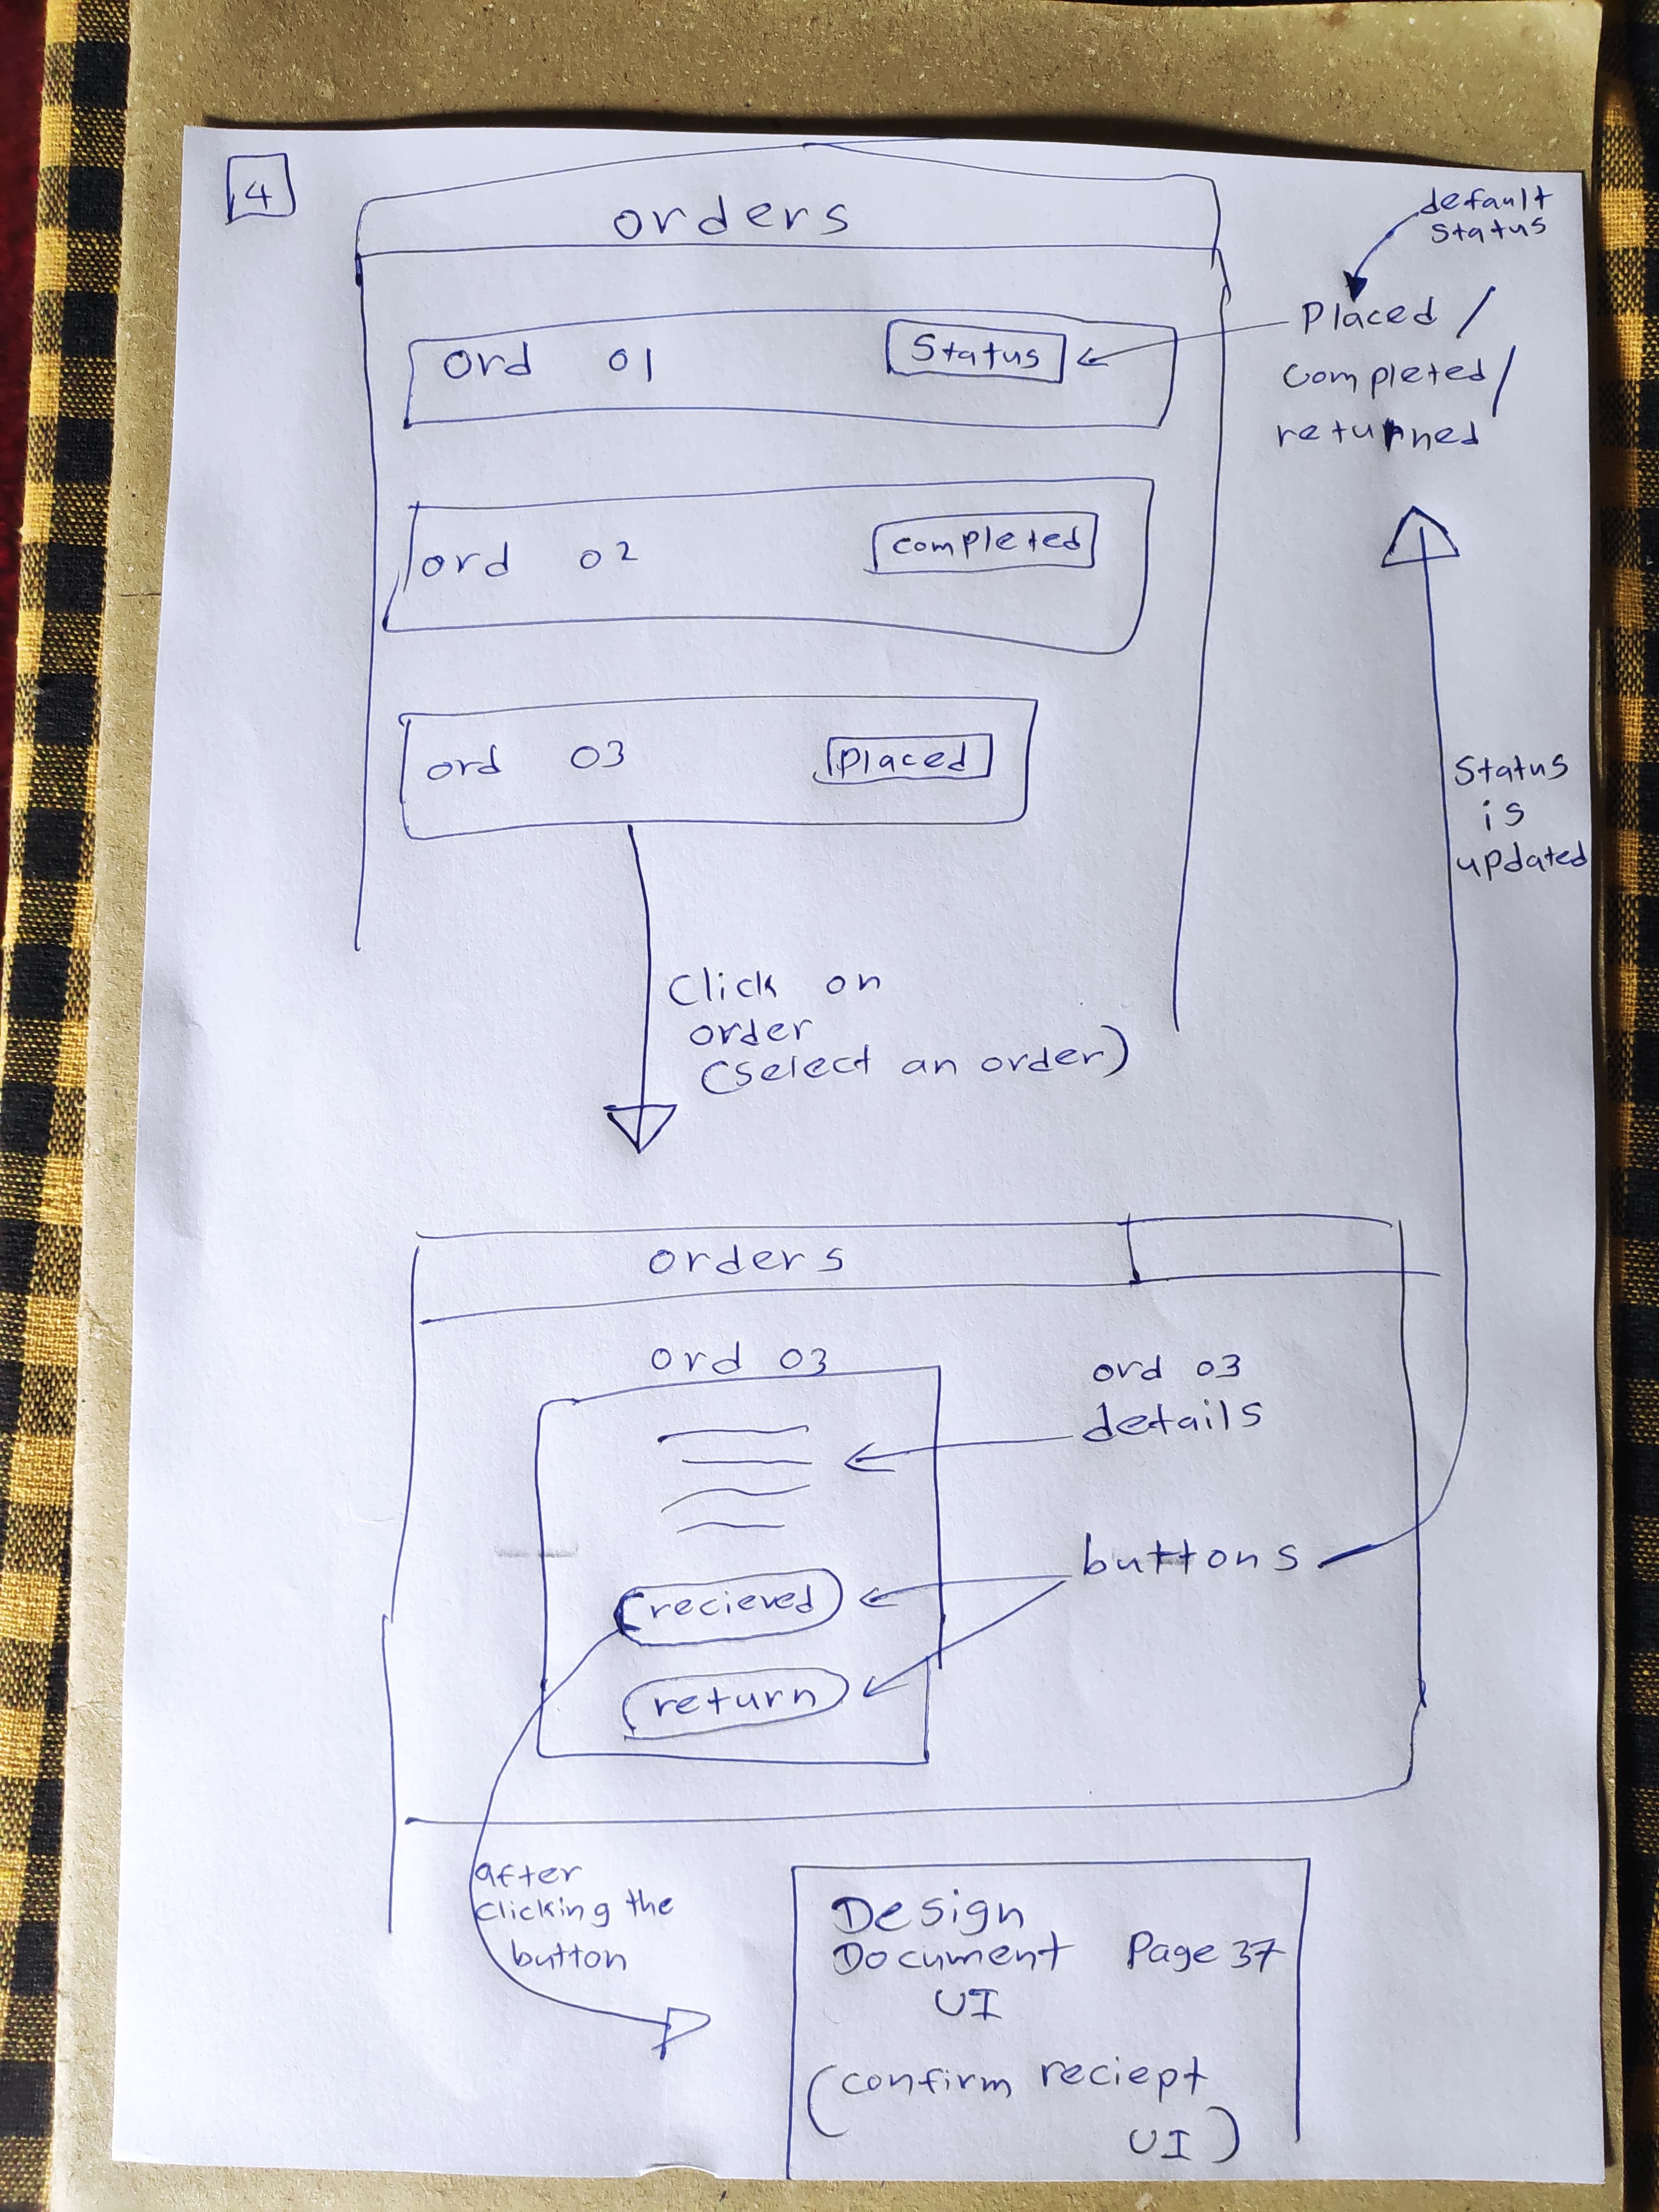 4
orders
default
status
Placed /
Ord 01 Status
completed/
returned
ord 02 completed
ord 03 Placed
Status
is
updated
Click on
order
(select an order)
orders
ord 03
ord 03
details
buttons
recieved
return
after
clicking the
button
Design
Document Page 37
UI
(confirm reciept
UI)